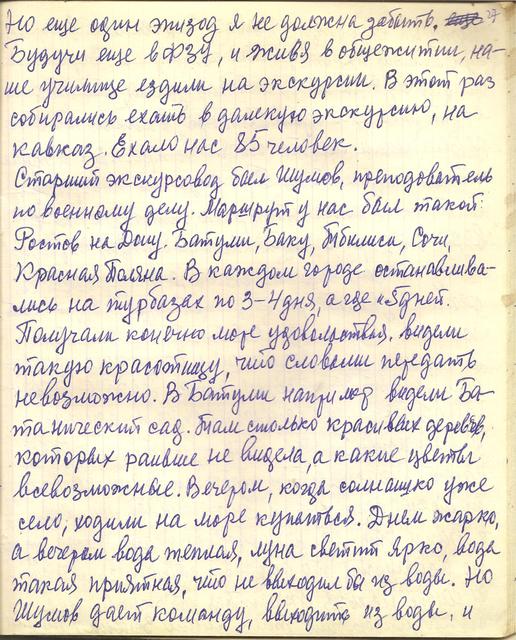 Но еще один эпизод я не должна забыть. 27
Будучи еще в ФЗУ, и живя в общежитии, на-
ше училище ездили на экскурсии. В этот раз
собирались ехать в далекую экскурсию, на
кавказ. Ехало нас 85 человек.
Старший экскурсовод был Шумов, преподователь
по военному делу. Маршрут у нас был такой:
Ростов на Дону. Батуми, Баку, Тбилиси, Сочи,
Красная Поляна. В каждом городе останавлива-
лись на турбазах по 3-4 дня, а где и 5 дней.
Получали конечно море удовольствия, видели
такую красотищу, что словами передать
невозможно. В Батуми например видели Ба-
танический сад. Там столько красивых деревьев,
которых раньше не видела, а какие цветы
всевозможные. Вечером, когда солнышко уже
село, ходили на море купаться. Днем жарко,
а вечером вода теплая, луна светит ярко, вода
такая приятная, что не выходил бы из воды. Но
Шумов дает команду, выходить из воды, и